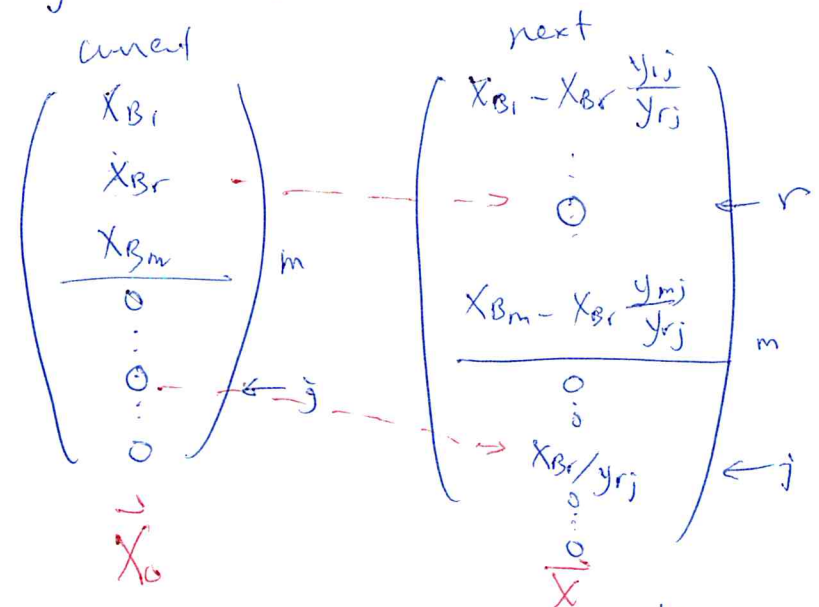 current
next
X_{B1}
X_{Br}
X_{Bm}
m
0
⋮
0
← j
⋮
0
X_0
X_{B1} - X_{Br} \frac{y_{1j}}{y_{rj}}
⋮
0
← r
X_{Bm} - X_{Br} \frac{y_{mj}}{y_{rj}}
m
0
⋮
X_{Br}/y_{rj}
← j
0
⋮
0
X